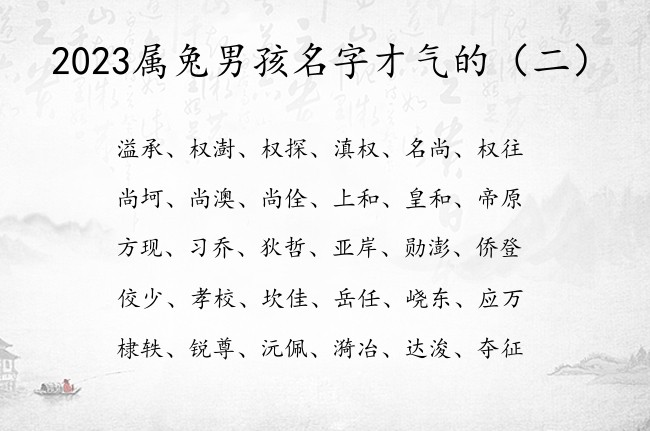 2023属兔男孩名字才气的（二）
溢承、权澍、权探、滇权、名尚、权往
尚坷、尚澳、尚佺、上和、皇和、帝原
方现、习乔、狄哲、亚岸、勋澎、侨登
佼少、孝校、坎佳、岳任、峣东、应万
棣轶、锐尊、沅佩、漪冶、达浚、夺征